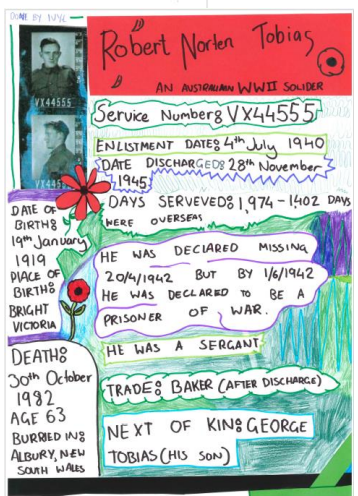 DONE BY NYL
Robert Norten Tobias
AN AUSTRALIAN WWII SOLIDER
VX44555
VX44555
Service Number: VX44555
ENLISTMENT DATE: 4th July 1940
DATE DISCHARGED: 28th November
1945
DAYS SERVEVED: 1,974 - 1402 DAYS
WERE OVERSEAS
DATE OF
BIRTH:
19th January
1919
PLACE OF
BIRTH:
BRIGHT
VICTORIA
HE WAS DECLARED MISSING
20/4/1942 BUT BY 1/6/1942
HE WAS DECLARED TO BE A
PRISONER OF WAR.
HE WAS A SERGANT
DEATH:
30th October
1982
AGE 63
BURRIED IN:
ALBURY, NEW
SOUTH WALES
TRADE: BAKER (AFTER DISCHARGE)
NEXT OF KIN: GEORGE
TOBIAS (HIS SON)